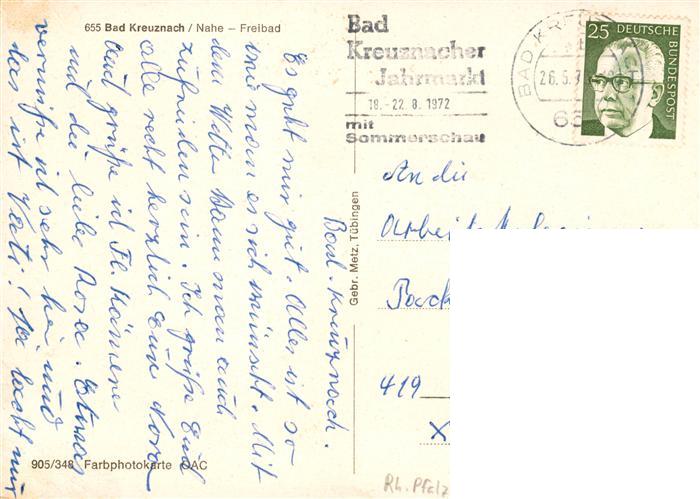 655 Bad Kreuznach / Nahe – Freibad
Bad
Kreuznacher
Jahrmarkt
18.-22. 8. 1972
mit
Sommerschau
BAD KRE
26.5.7
65
25 DEUTSCHE
BUNDESPOST
Bad-Kreuznach.
Es geht mir gut. Alles ist so
wie man es sich wünscht. Mit
dem Wetter kann man auch
zufrieden sein. Ich grüße Euch
alle recht herzlich Eure Nora
Auch grüße ich Fl.
und die liebe Rosa. Etwas
vermisse ich sehr hier und
das ist Vati! Ja lacht nur
An die
419
X
Gebr. Metz, Tübingen
905/348 Farbphotokarte OAC
Rh. Pfalz